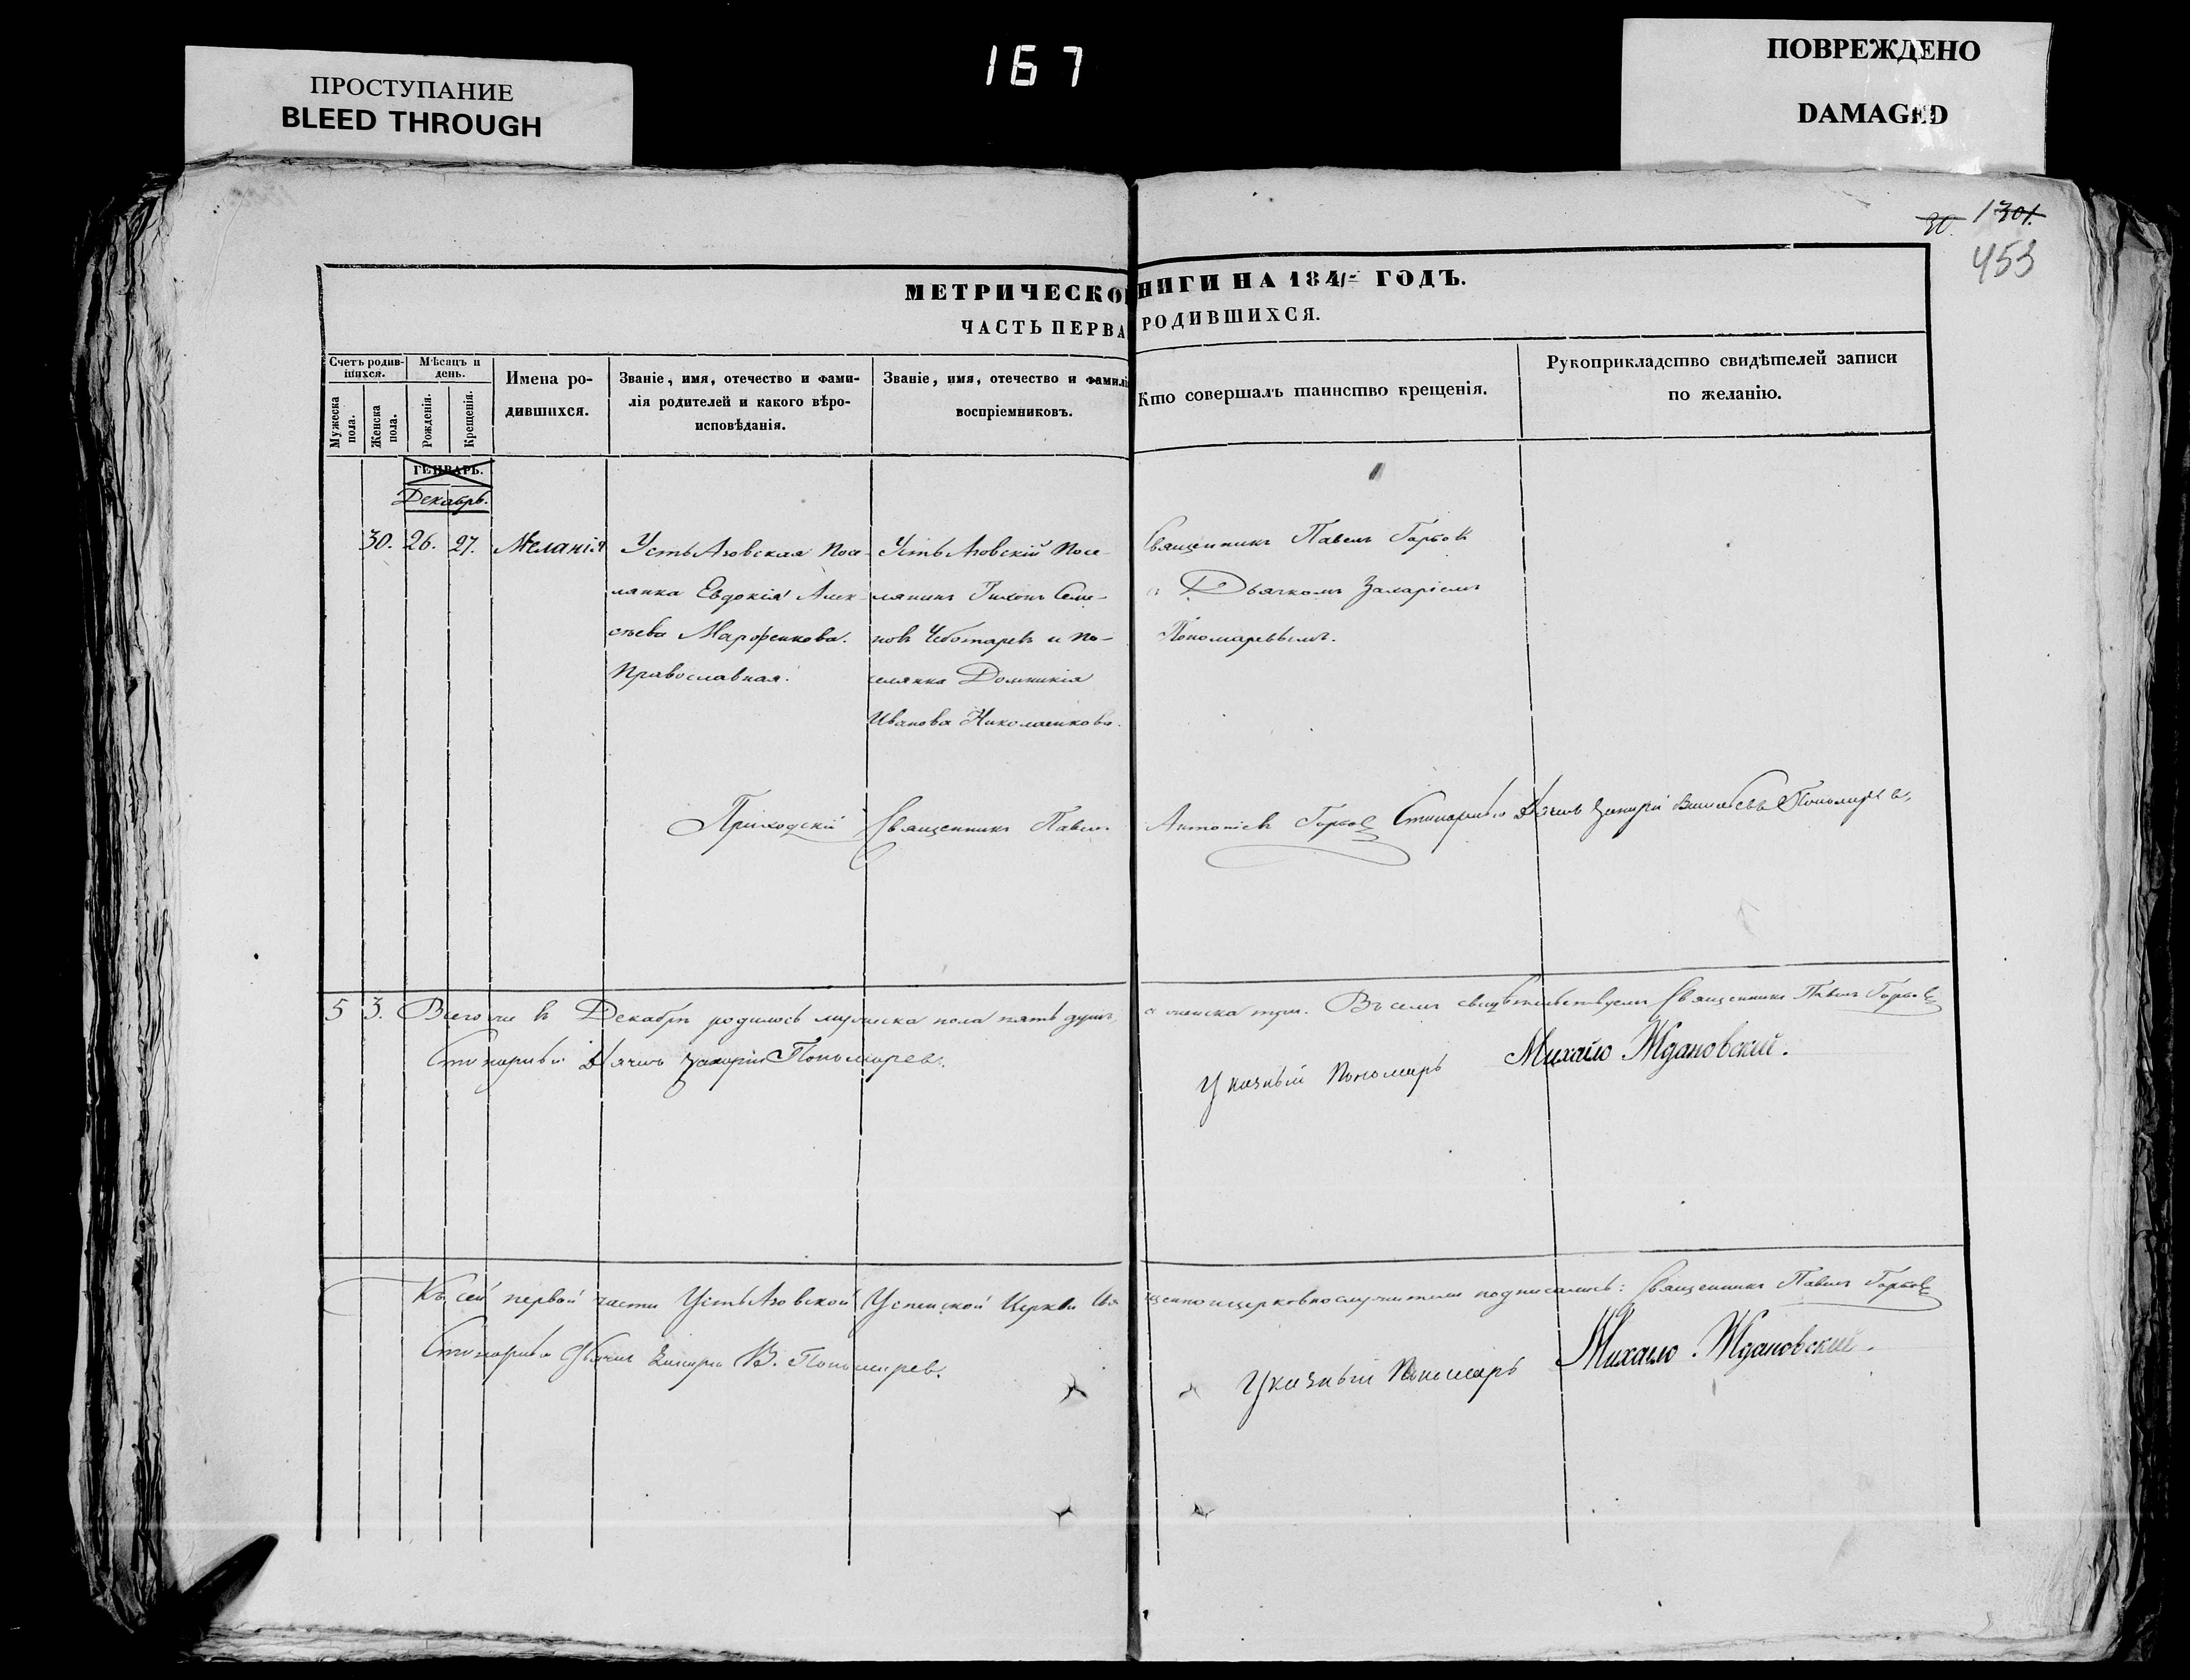 167
ПРОСТУПАНИЕ
BLEED THROUGH
ПОВРЕЖДЕНО
DAMAGED
30. 1301.
453
МЕТРИЧЕСКО НИГИ НА 1841 ГОДЪ.
ЧАСТЬ ПЕРВА РОДИВШИХСЯ.
Счетъ родившихся.
Мужеска пола.
Женска пола.
Мѣсяцъ и день.
Рожденія.
Крещенія.
Имена родившихся.
Званіе, имя, отечество и фамилія родителей и какого вѣроисповѣданія.
Званіе, имя, отечество и фамилі
воспріемниковъ.
Кто совершалъ таинство крещенія.
Рукоприкладство свидѣтелей записи
по желанію.
ГЕНВАРЬ.
Декабрь.
30. 26. 27. Меланія
Усть Азовская посе-
лянка Евдокія Алек-
сѣева Марофенкова.
Православная.
Усть Азовскій посе-
лянинъ Тихонъ Семе-
новъ Чеботаревъ и по-
селянка Домникія
Иванова Николаенкова.
Священникъ Павелъ
Дьячкомъ Захаріемъ
Пономаревымъ.
Приходскій Священникъ Павелъ Антоніевъ
5 3. Всего же въ Декабрѣ родилось мужеска пола пять душъ, а женска три. Въ семъ свидѣтельствуемъ Священникъ Павелъ
Дячокъ Захарій Пономарев.
Указный Пономарь Михайло Ждановский.
Къ сей первой части Усть Азовской Успенской Церкви Свя щенноицерковнослужители подписались: Священникъ Павелъ
В. Пономарев.
Указный Пономарь Михайло Ждановский.